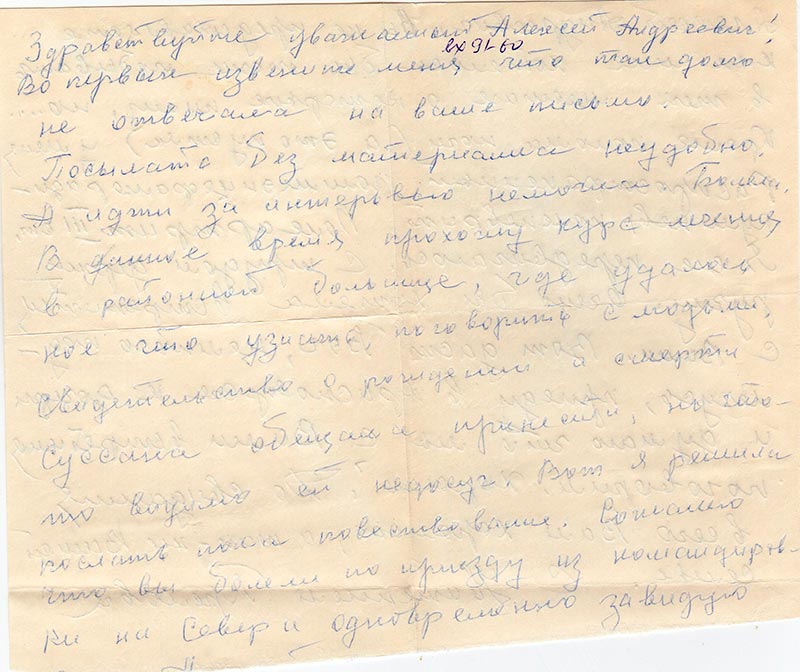 Здравствуйте уважаемый Алексей Андреевич!
Во первых извените меня что так долго
не отвечала на ваше письмо.
Посылать без материалла неудобно,
А идти за интервью немогла болела.
В данное время прохожу курс лечения
в районной больнице, где удалось
кое что узнать, поговорить с людьми,
свидетельство о рождении и смерти
Суссана обещала принести, но что-
то видимо ей недосуг. Вот я решила
послать пока повествование. Сожалею
что вы болели по приезду из командиров-
ки на Север и одновременно завидую